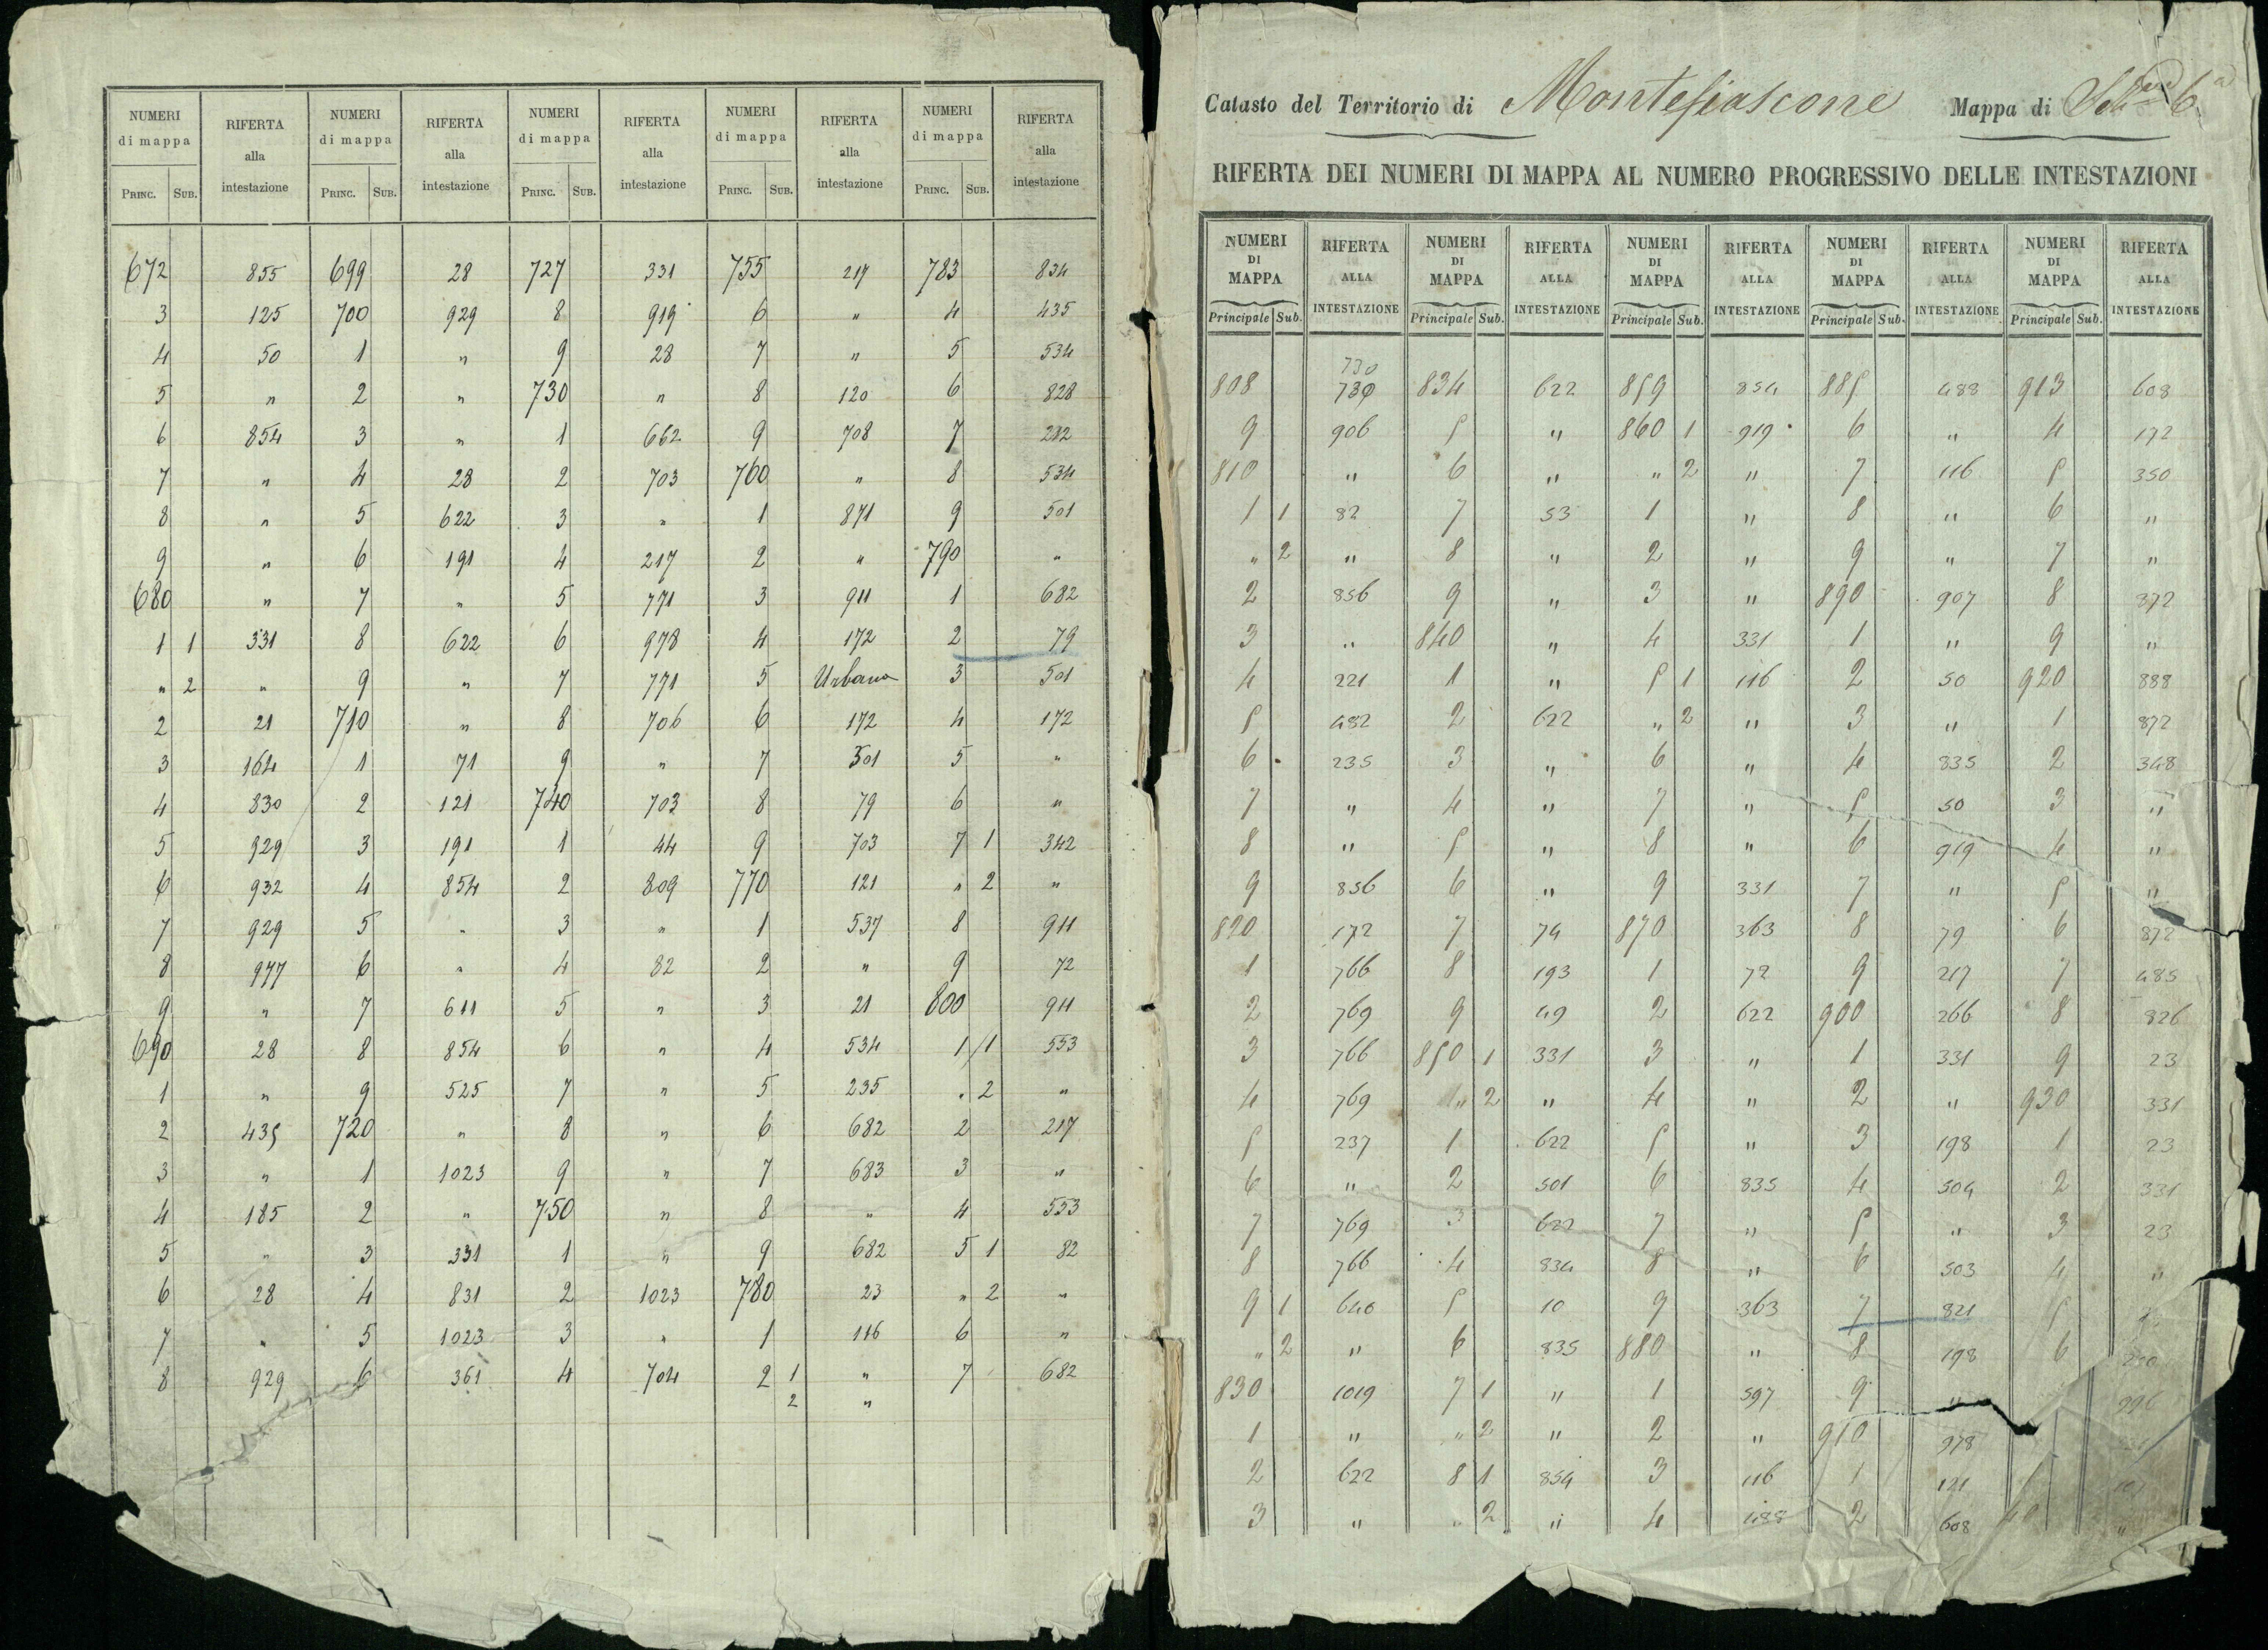 NUMERI di mappa RIFERTA alla intestazione NUMERI di mappa RIFERTA alla intestazione NUMERI di mappa RIFERTA alla intestazione NUMERI di mappa RIFERTA alla intestazione NUMERI di mappa RIFERTA alla intestazione
PRINC. SUB. PRINC. SUB. PRINC. SUB. PRINC. SUB. PRINC. SUB.
672 855 699 28 727 331 755 217 783 834
3 125 700 929 8 919 6 " 4 435
4 50 1 " 9 28 7 " 5 534
5 " 2 " 730 " 8 120 6 828
6 854 3 " 1 662 9 708 7 212
7 " 4 28 2 703 760 " 8 534
8 " 5 622 3 " 1 871 9 501
9 " 6 191 4 217 2 " 790 "
680 " 7 " 5 771 3 911 1 682
1 1 331 8 622 6 978 4 172 2 79
" 2 " 9 " 7 771 5 Urbano 3 501
2 21 710 " 8 706 6 172 4 172
3 164 1 71 9 " 7 501 5 "
4 830 2 121 740 703 8 79 6 "
5 929 3 191 1 44 9 703 7 1 342
6 932 4 854 2 809 770 121 " 2 "
7 929 5 " 3 " 1 537 8 911
8 977 6 " 4 82 2 " 9 72
9 " 7 611 5 " 3 21 800 911
690 28 8 854 6 " 4 534 1 1 553
1 " 9 525 7 " 5 235 " 2 "
2 435 720 " 8 " 6 682 2 217
3 " 1 1023 9 " 7 683 3 "
4 185 2 " 750 " 8 " 4 553
5 " 3 331 1 " 9 682 5 1 82
6 28 4 831 2 1023 780 23 " 2 "
7 " 5 1023 3 " 1 116 6 "
8 929 6 361 4 704 2 1 " 7 682
2 "
Catasto del Territorio di Montefiascone Mappa di 6a
RIFERTA DEI NUMERI DI MAPPA AL NUMERO PROGRESSIVO DELLE INTESTAZIONI
NUMERI DI MAPPA RIFERTA ALLA INTESTAZIONE NUMERI DI MAPPA RIFERTA ALLA INTESTAZIONE NUMERI DI MAPPA RIFERTA ALLA INTESTAZIONE NUMERI DI MAPPA RIFERTA ALLA INTESTAZIONE NUMERI DI MAPPA RIFERTA ALLA INTESTAZIONE
Principale Sub. Principale Sub. Principale Sub. Principale Sub. Principale Sub.
730
808 730 834 622 859 854 885 488 913 608
9 906 5 " 860 1 919 6 " 4 172
810 " 6 " " 2 " 7 116 5 350
1 1 82 7 53 1 " 8 " 6 "
" 2 " 8 " 2 " 9 " 7 "
2 856 9 " 3 " 890 907 8 872
3 " 840 " 4 331 1 " 9 "
4 221 1 " 5 1 116 2 50 920 888
5 482 2 622 " 2 " 3 " 1 872
6 235 3 " 6 " 4 835 2 348
7 " 4 " 7 " 5 50 3 "
8 " 5 " 8 " 6 919 4 "
9 856 6 " 9 331 7 " 5 "
820 172 7 74 870 363 8 79 6 872
1 766 8 193 1 72 9 217 7 485
2 769 9 49 2 622 900 266 8 826
3 766 850 1 331 3 " 1 331 9 23
4 769 " 2 " 4 " 2 " 930 331
5 237 1 622 5 " 3 198 1 23
6 " 2 501 6 835 4 504 2 331
7 769 3 622 7 " 5 " 3 23
8 766 4 834 8 " 6 503 4 "
9 1 640 5 10 9 363 7 821 5
" 2 " 6 835 880 " 8 198 6
830 1019 7 1 " 1 597 9 "
1 " " 2 " 2 " 910 978
2 622 8 1 854 3 116 1 121
3 " " 2 " 4 488 2 608